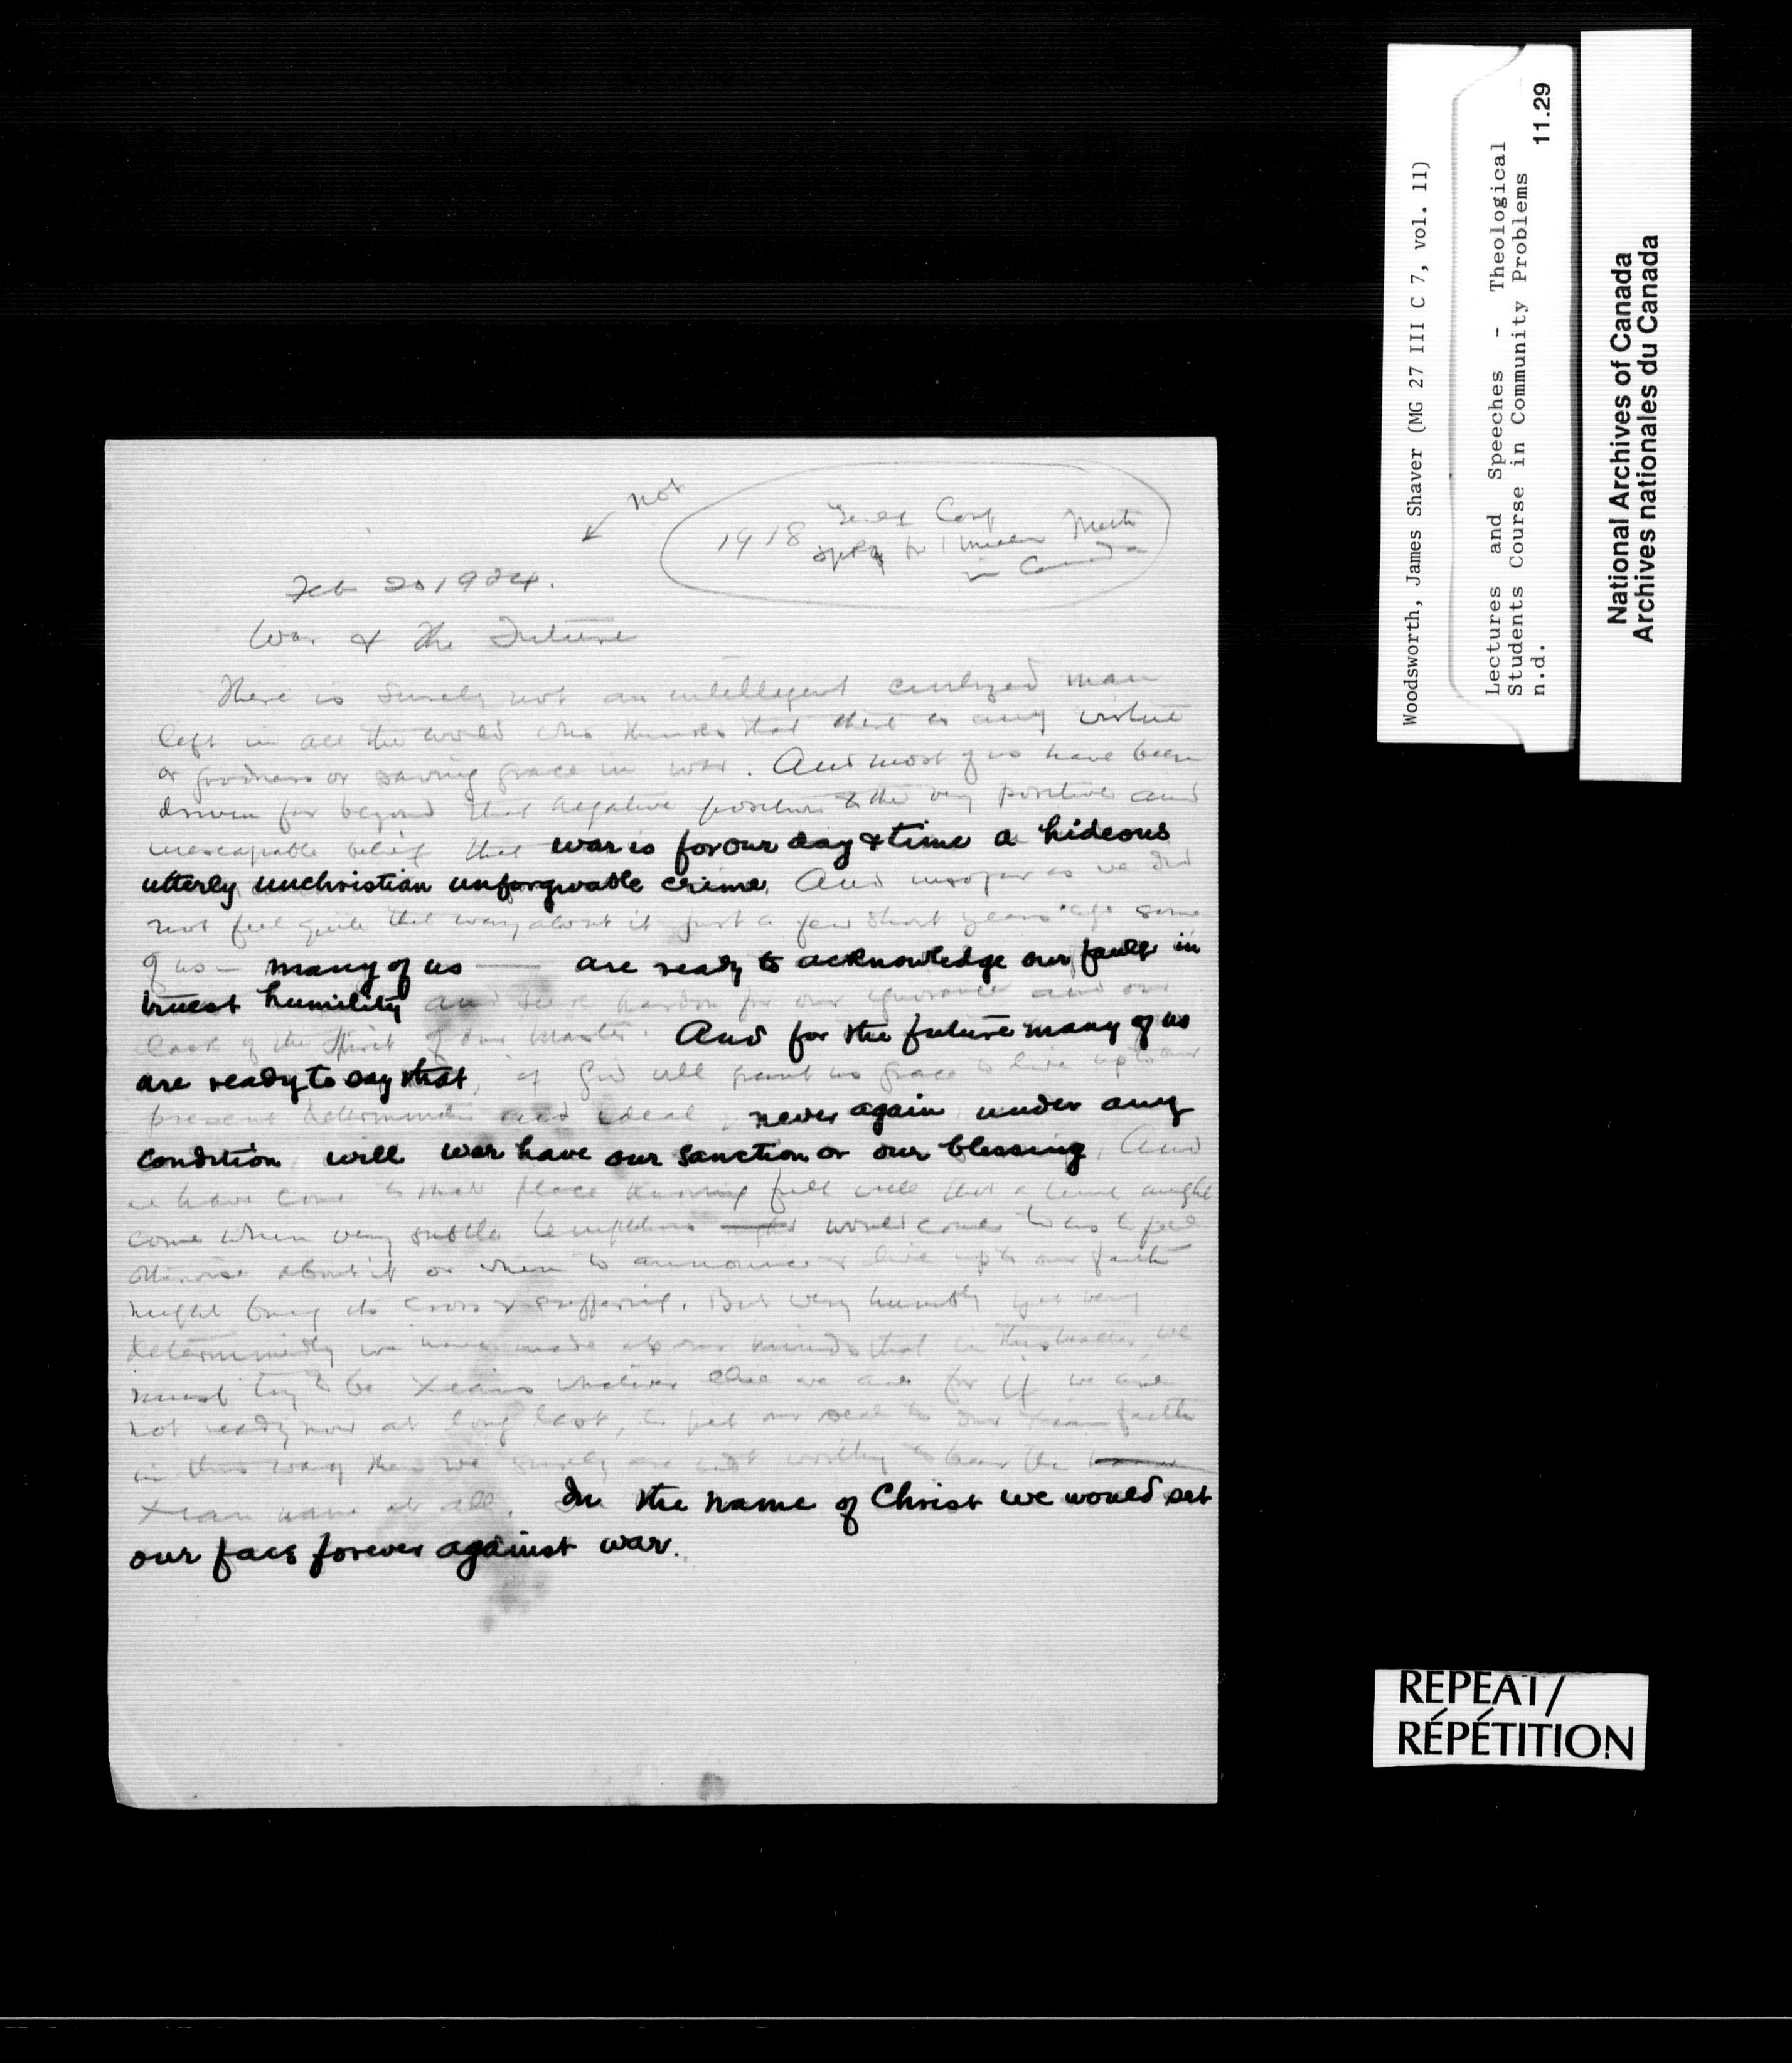 not
1918 Genl Conf
spkg for 1 million Meth
in Canada
Feb 20 1924.
War & the Future
There is surely not an intelligent civilized man
left in all the world who thinks that there is any virtue
or goodness or saving grace in war. And most of us have been
driven far beyond that negative position to the very positive and
inescapable belief that war is for our day & time a hideous
utterly unchristian unforgivable crime. And insofar as we did
not feel quite that way about it just a few short years ago some
of us — many of us — are ready to acknowledge our fault in
truest humility and seek pardon for our ignorance and our
lack of the spirit of our Master. And for the future many of us
are ready to say that, if God will grant us grace to live up to our
present determination and ideal, never again under any
condition, will war have our sanction or our blessing. And
we have come to that place knowing full well that a time might
come when very subtle temptations would come to us to feel
otherwise about it or when to announce & live up to our faith
might bring its cross & suffering. But very humbly yet very
determinedly we have made up our minds that in this matter, we
must try to be Xians whatever else we are for if we are
not ready now at long last, to put our seal to our Xian faith
in this way then we surely are not worthy to bear the
Xian name at all. In the name of Christ we would set
our face forever against war.
Woodsworth, James Shaver (MG 27 III C 7, vol. 11)
Lectures and Speeches - Theological
Students Course in Community Problems
n.d. 11.29
National Archives of Canada
Archives nationales du Canada
REPEAT/
RÉPÉTITION